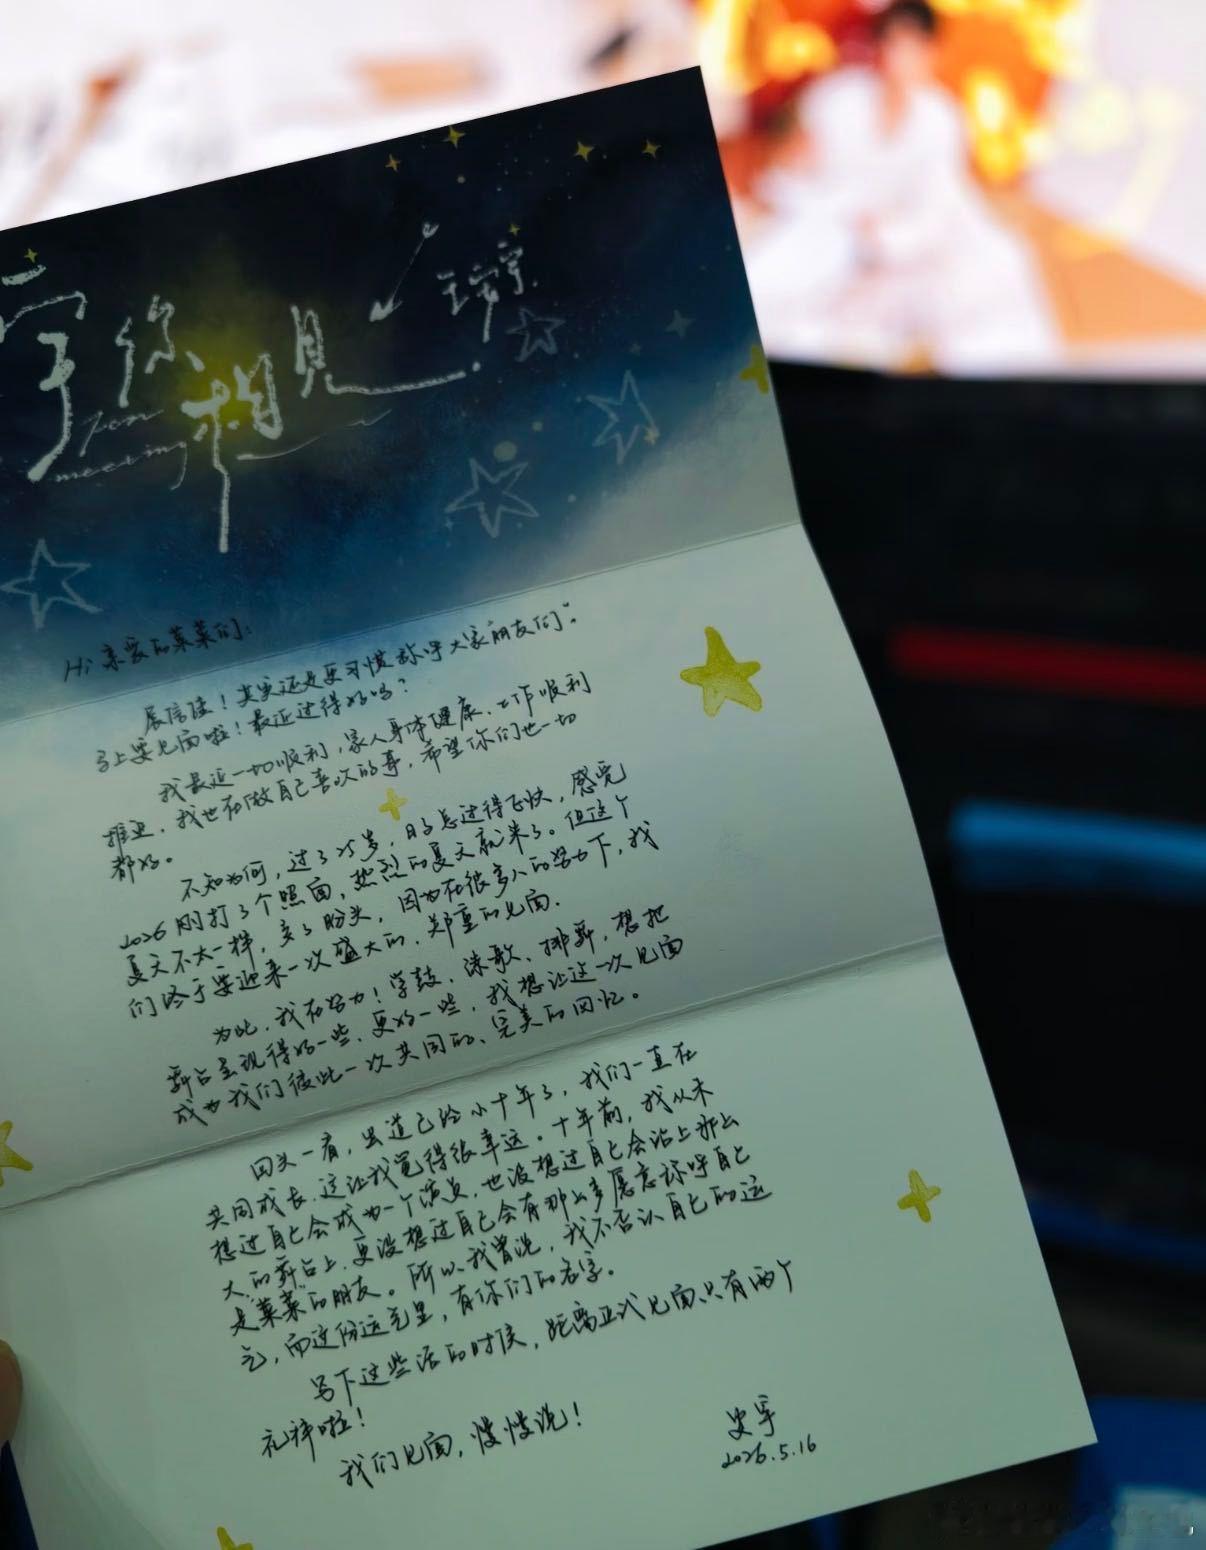 宇你相見
for
meeting
Hi 亲爱的菜菜们:
展信佳!其实还是更习惯称呼大家“朋友们”。
马上要见面啦!最近过得好吗?
我最近一切顺利,家人身体健康、工作顺利
推进,我也在做自己喜欢的事,希望你们也一切
都好。
不知为何,过了25岁,日子总过得飞快,感觉
2026刚打了个照面,热烈的夏天就来了。但这个
夏天不太一样,多了盼头,因为在很多人的努力下,我
们终于要迎来一次盛大的、郑重的见面.
为此,我在努力!学鼓、练歌、排舞,想把
舞台呈现得好一些、更好一些,我想让这一次见面
成为我们彼此一次共同的、完美的回忆。
回头一看,出道已经小十年了,我们一直在
共同成长,这让我觉得很幸运。十年前,我从未
想过自己会成为一个演员,也没想过自己会站上那么
大的舞台上,更没想过自己会有那么多愿意称呼自己
是“菜菜”的朋友。所以我曾说,我不否认自己的运
气,而这份运气里,有你们的名字。
写下这些话的时候,距离正式见面只有两个
礼拜啦!
我们见面,慢慢说!
史宇
2026.5.16